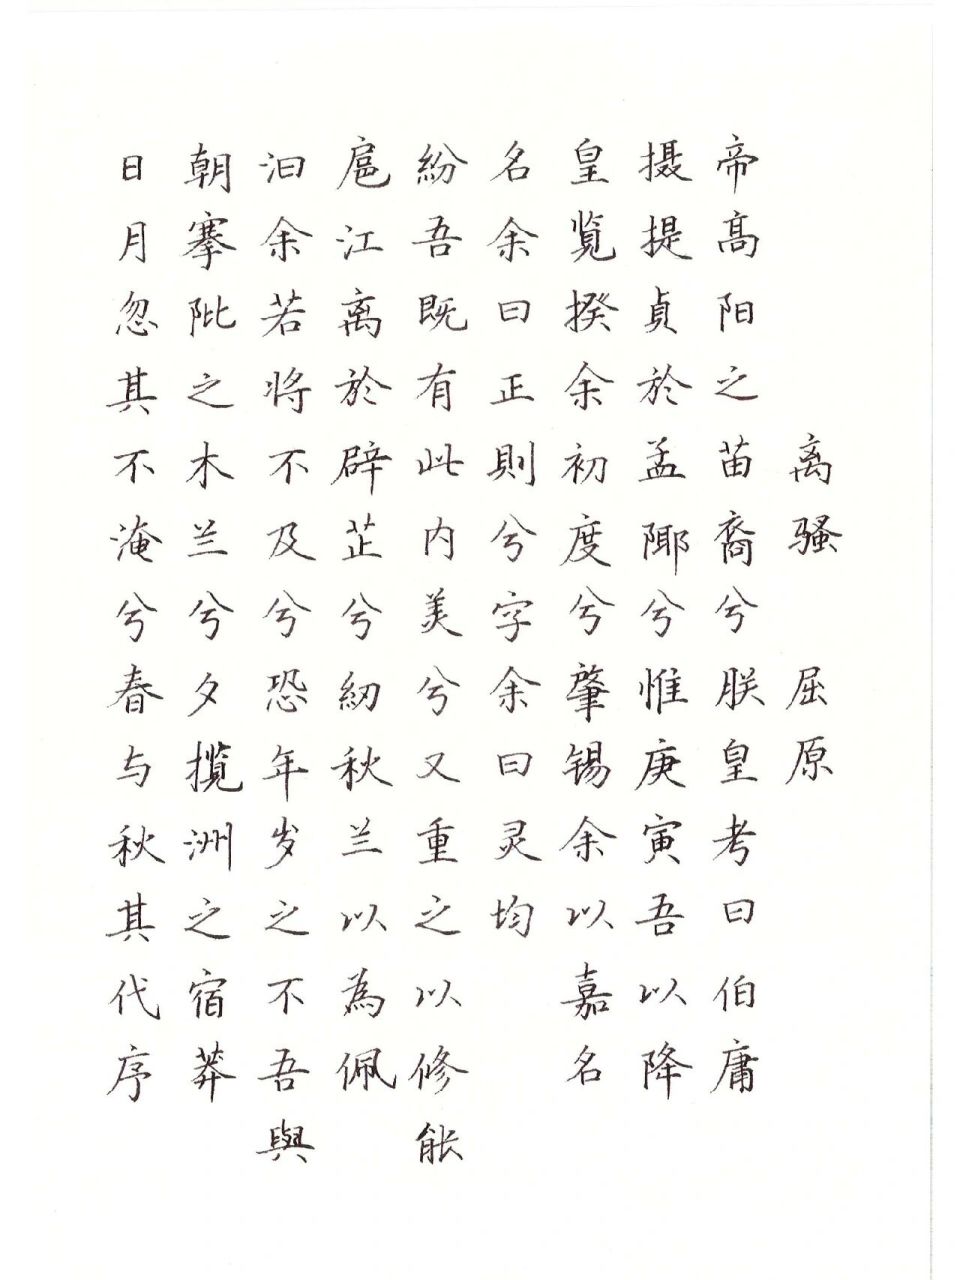 离骚 屈原
帝高阳之苗裔兮朕皇考曰伯庸
摄提贞於孟陬兮惟庚寅吾以降
皇览揆余初度兮肇锡余以嘉名
名余曰正则兮字余曰灵均
纷吾既有此内美兮又重之以修能
扈江离於辟芷兮纫秋兰以為佩
汩余若将不及兮恐年岁之不吾與
朝搴阰之木兰兮夕揽洲之宿莽
日月忽其不淹兮春与秋其代序